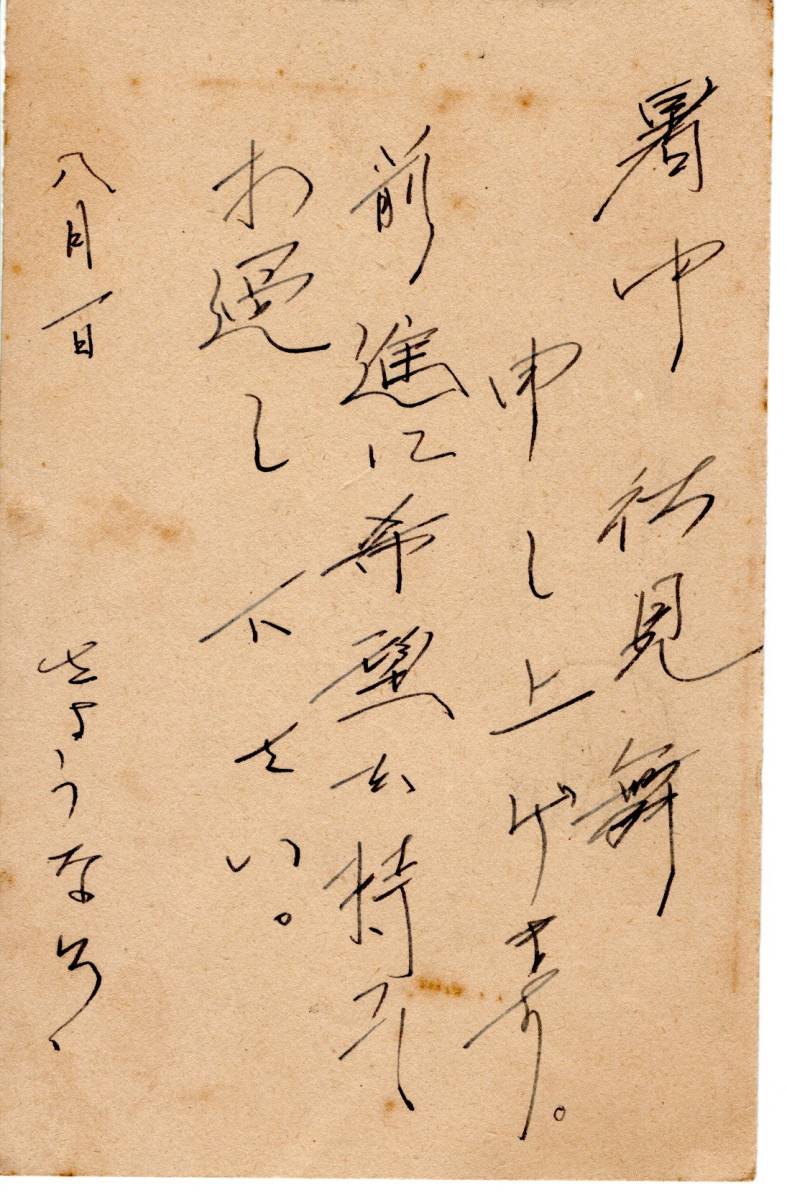 暑中御見舞
申し上げます。
前進に希望を持って
お過し下さい。
八月一日
さようなら、